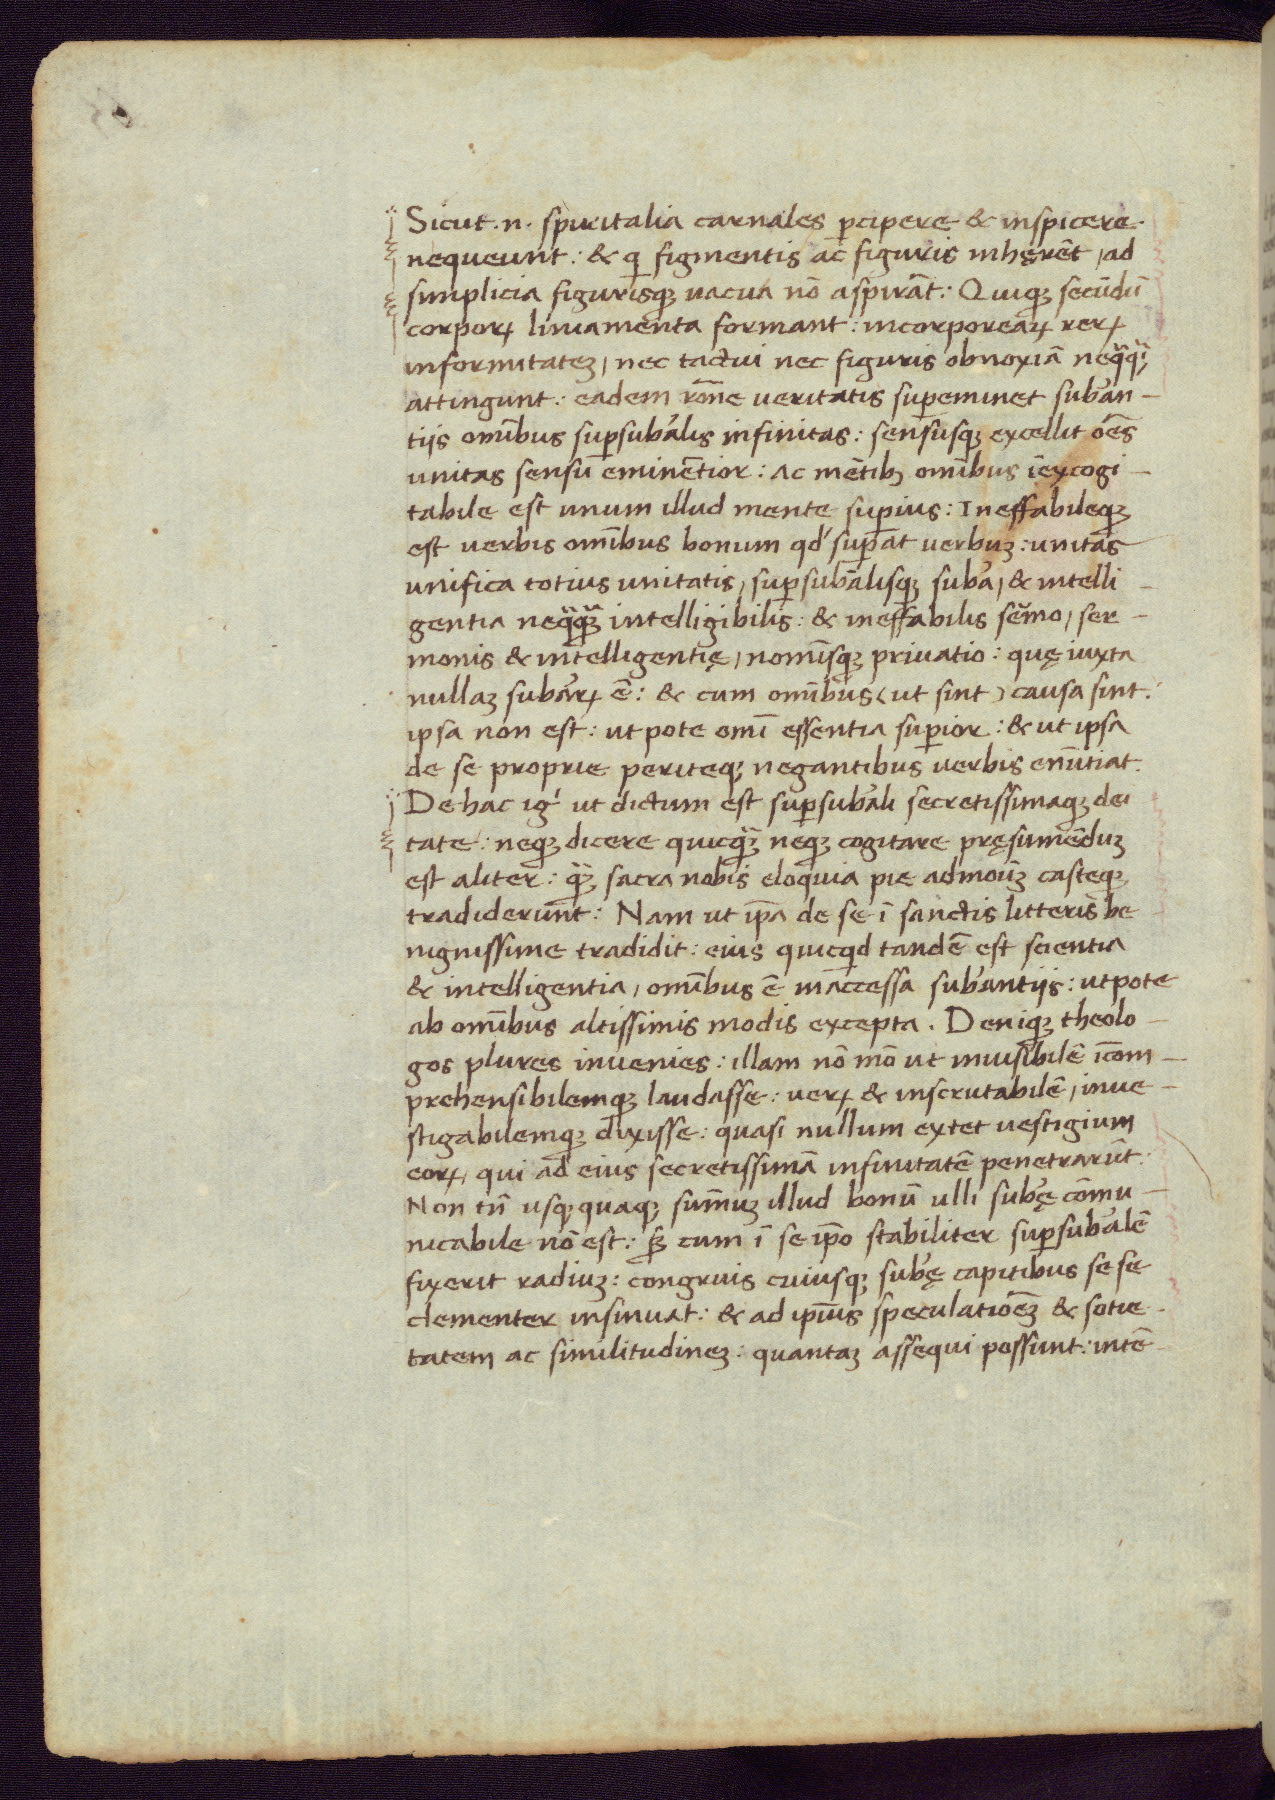 Sicut .n. spiritalia carnales ꝑcipere & inspicere
nequeunt: & qͥ figmentis ac figuris inhęrēt, ad
simplicia figurisqꝫ uacua nō aspirāt: Quiqꝫ secūdū
corpoꝝ liniamenta formant: incorporeaꝝ reꝝ
informitateꝫ, nec tactui nec figuris obnoxiā neq̄q̄ꝫ
attingunt: eadem rōne ueritatis suꝑeminet subān-
tijs omībus suꝑsubālis infinitas: sensusqꝫ excellit oēs
unitas sensū eminētior: Ac mētibꝫ omībus īexcogi-
tabile est unum illud mente suꝑius: Ineffabileqꝫ
est uerbis omībus bonum qd' suꝑat uerbuꝫ: unitas
unifica totius unitatis, suꝑsubālisqꝫ subā, & intelli-
gentia neq̄q̄ꝫ intelligibilis: & ineffabilis sēmo, ser-
monis & intelligentię, nomīsqꝫ priuatio: quę iuxta
nullaꝫ subāꝝ ē: & cum omībus (ut sint) causa sint:
ipsa non est: ut pote omī essentia suꝑior: & ut ipsa
de se proprie periteqꝫ negantibus uerbis enūtiat.
De hac ig' ut dictum est suꝑsubāli secretissimaqꝫ dei
tate: neqꝫ dicere quicq̄ꝫ neqꝫ cogitare pręsumēduꝫ
est aliter: q̄ꝫ sacra nobis eloquia pie admodūꝫ casteqꝫ
tradiderunt: Nam ut ip̄a de se ī sanctis litteris be
nignissime tradidit: eius quicqͥd tandē est scientia
& intelligentia, omībus ē inaccessa subāntijs: utpote
ab omībus altissimis modis excepta. Deniqꝫ theolo-
gos plures inuenies: illam nō mō ut inuisibilē īcom-
prehensibilemqꝫ laudasse: ueꝝ & inscrutabilē, inue-
stigabilemqꝫ dixisse: quasi nullum extet uestigium
eoꝝ, qui ad eius secretissimā infinitatē penetrarūt:
Non tn̄ usqꝫquaqꝫ sum̄uꝫ illud bonū ulli subę cōmu-
nicabile nō est: sꝫ cum ī se ip̄o stabiliter suꝑsubālē
fixerit radiuꝫ: congruis cuiusqꝫ subę capitibus se se
clementer insinuat: & ad ip̄ius speculatioēꝫ & sotie-
tatem ac similitudineꝫ: quantaꝫ assequi possunt: intē-